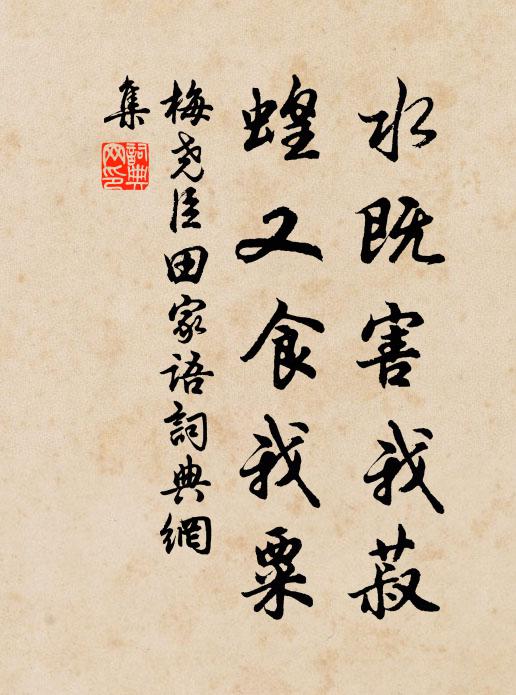 水既害我菽
蝗又食我粟
梅尧臣田家语詞典網
集
詞典網印